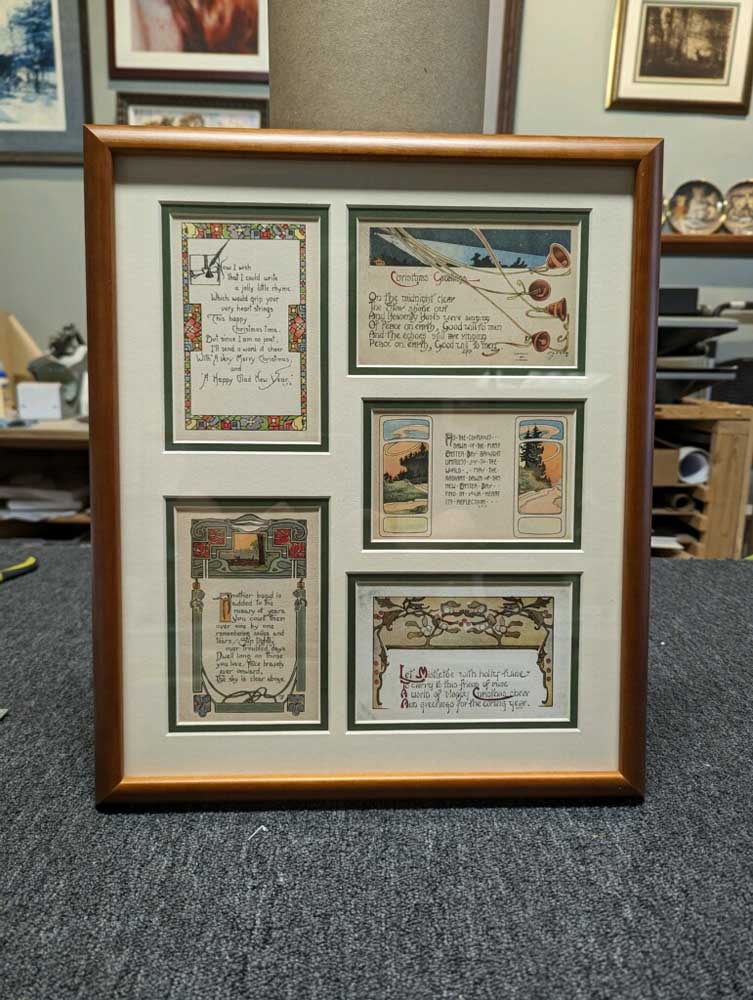 How I wish
that I could write
a jolly little rhyme
Which would grip your
very heart strings
This happy
Christmas time.
But since I am no poet,
I'll send a word of cheer
With "A Very Merry Christmas,
and
"A Happy Glad New Year."
Christmas Greetings
On the midnight clear
The star shone out
And Heavenly hosts were singing
Of Peace on earth, Good will to men
And the echoes still are ringing
Peace on earth, Good will to men
As the comings
dawn of the first
Easter Day brought
joy to the
world, may the
radiant dawn of this
new Easter Day
find in your heart
its reflection
Another bead is
added to the
rosary of years
you count them
over one by one
remembering smiles and
tears. Skip lightly
over troubled days
Dwell long on those
you love. Face bravely
ever onward,
The sky is clear above.
Let Mistletoe with holly twine
To carry to this friend of mine
A world of Happy Christmas cheer
And greetings for the coming year.